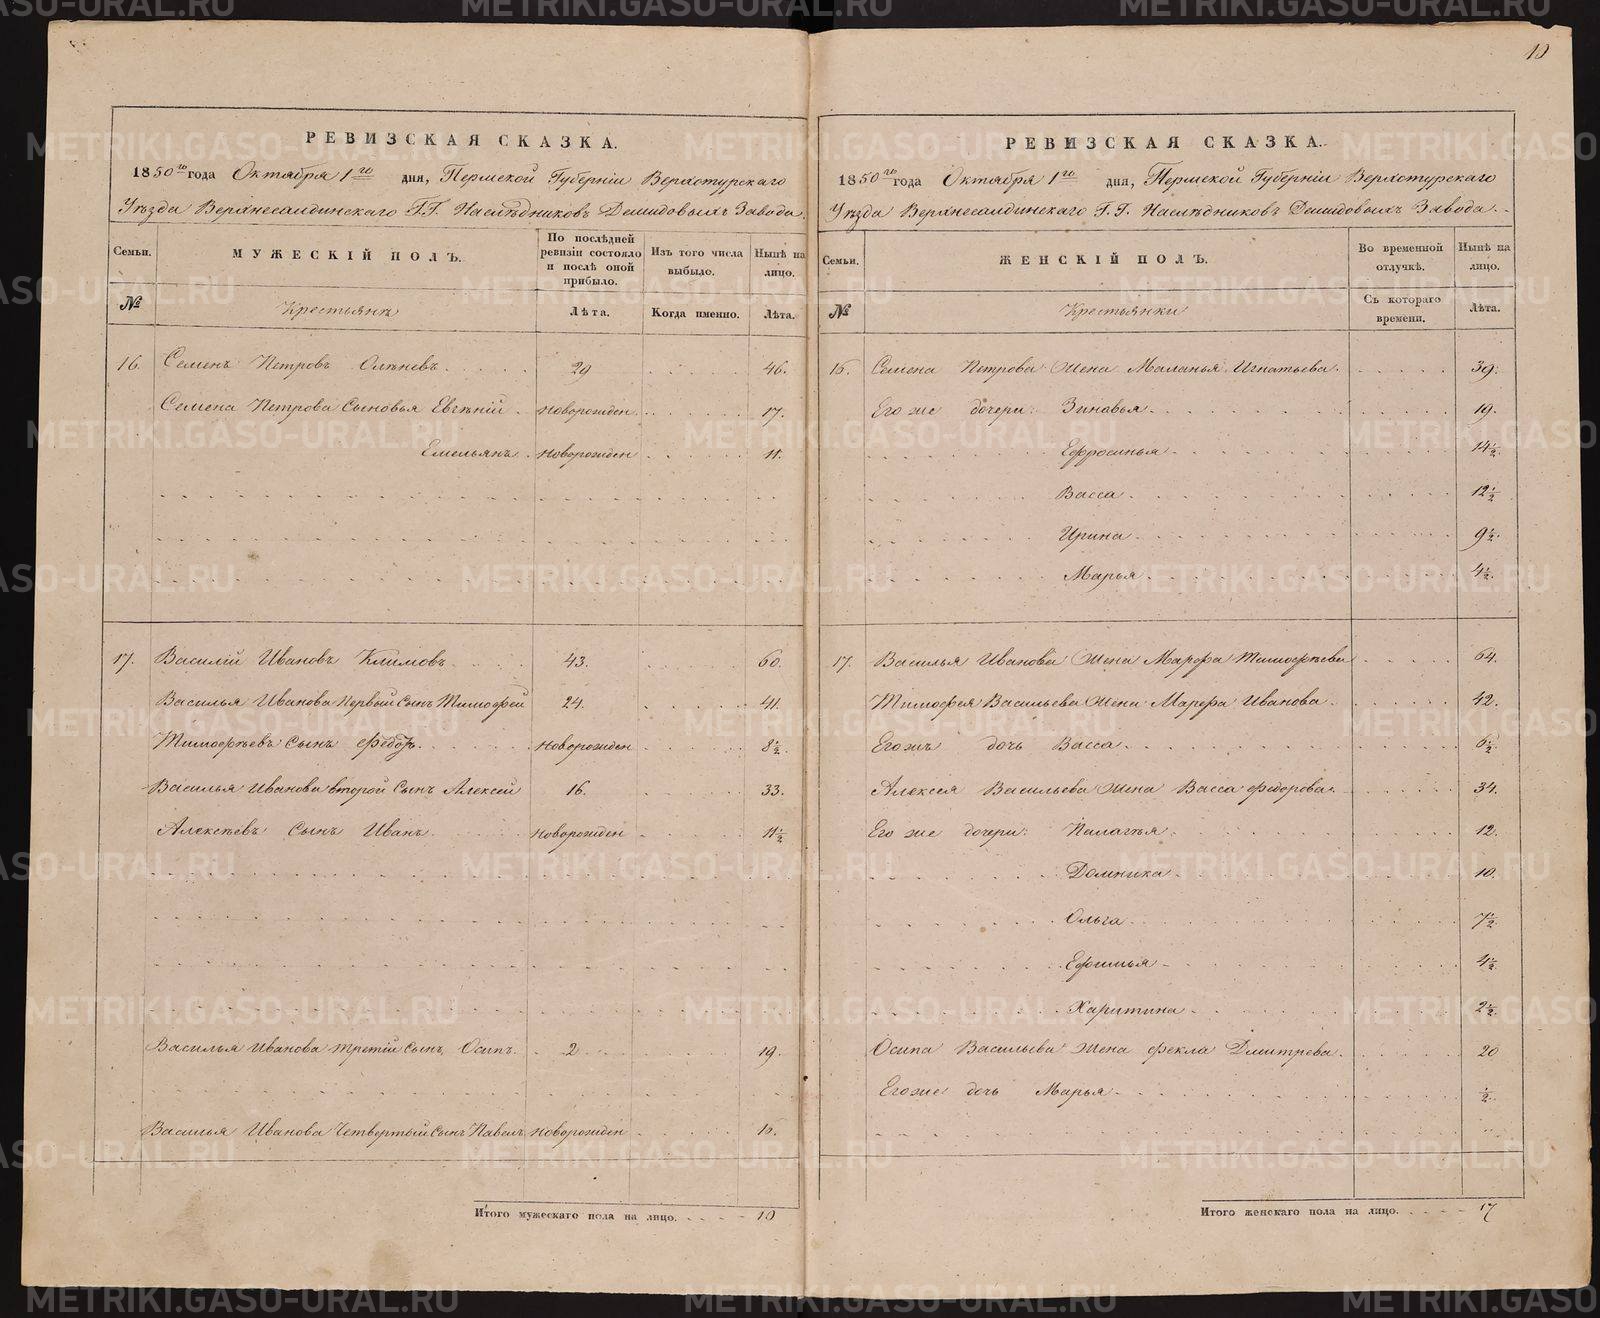 10
РЕВИЗСКАЯ СКАЗКА.
1850го года Октября 1го дня, Пермской Губерніи Верхотурскаго
Уѣзда Верхнесалдинскаго Г.Г. Наслѣдниковъ Демидовыхъ Завода.
Семьи.
МУЖЕСКІЙ ПОЛЪ.
По послѣдней ревизіи состояло и послѣ оной прибыло.
Изъ того числа выбыло.
Нынѣ на лицо.
№
Крестьянѣ
Лѣта.
Когда именно.
Лѣта.
16. Семенъ Петровъ Олѣневъ 29 46.
Семена Петрова Сыновья Евгѣній новорожден 17.
Емельянъ новорожден 11.
17. Василій Ивановъ Климовъ 43. 60.
Василья Иванова Первый Сынъ Тимофей 24. 41.
Тимофѣевъ Сынъ Федоръ новорожден 8½.
Василья Иванова второй Сынъ Алексей 16. 33.
Алексѣевъ Сынъ Иванъ новорожден 11½
Василья Иванова третій Сынъ Осипъ 2 19.
Василья Иванова Четвертый Сынъ Павелъ новорожден 15.
Итого мужескаго пола на лицо. 10
РЕВИЗСКАЯ СКАЗКА.
1850го года Октября 1го дня, Пермской Губерніи Верхотурскаго
Уѣзда Верхнесалдинскаго Г.Г. Наслѣдниковъ Демидовыхъ Завода.
Семьи.
ЖЕНСКІЙ ПОЛЪ.
Во временной отлучкѣ.
Нынѣ на лицо.
№
Крестьянки
Съ котораго времени.
Лѣта.
16. Семена Петрова Жена Маланья Игнатьева. 39.
Его же дочери: Зиновья 19.
Ефросинья 14½
Васса 12½
Ирина 9½
Марья 4½
17. Василья Иванова Жена Марфа Тимофѣева 64.
Тимофея Васильева Жена Марфа Иванова 42.
Егожъ дочь Васса 6½
Алексея Васильева Жена Васса Федорова 34.
Его же дочери: Палагѣя 12.
Домника 10.
Ольга 7½
Ефимья 4½
Харитина 2½
Осипа Васильева Жена Фекла Дмитрева. 20
Егоже дочь Марья ½
Итого женскаго пола на лицо. 17